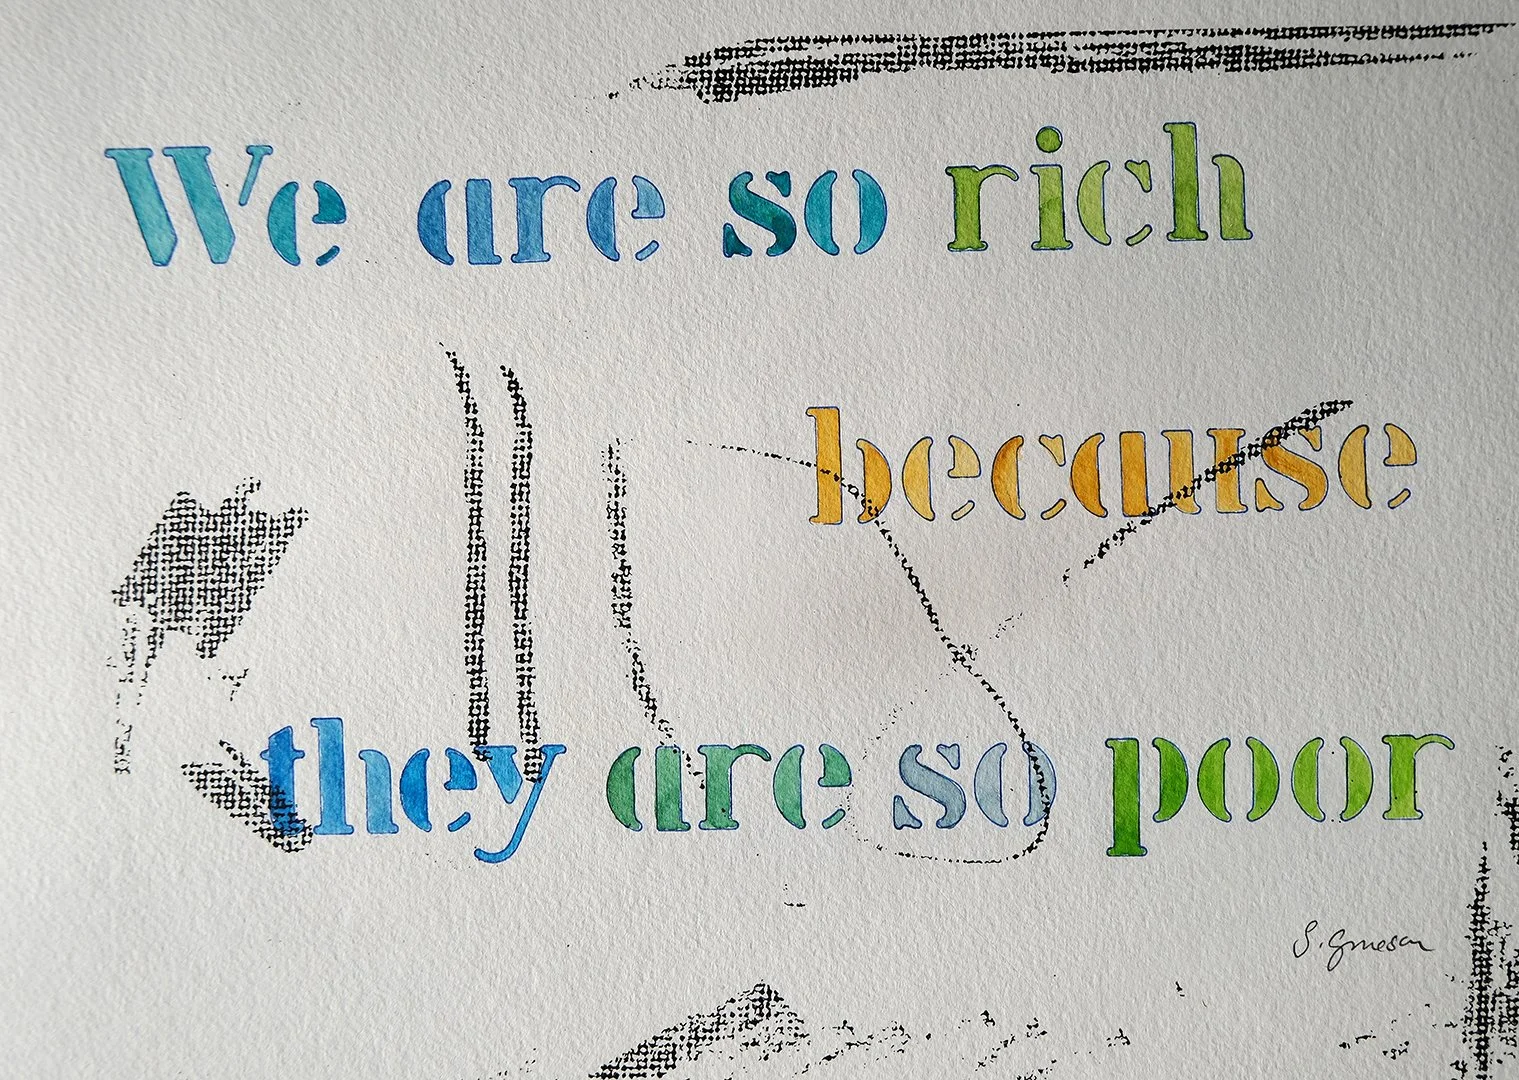 We are so rich
because
they are so poor